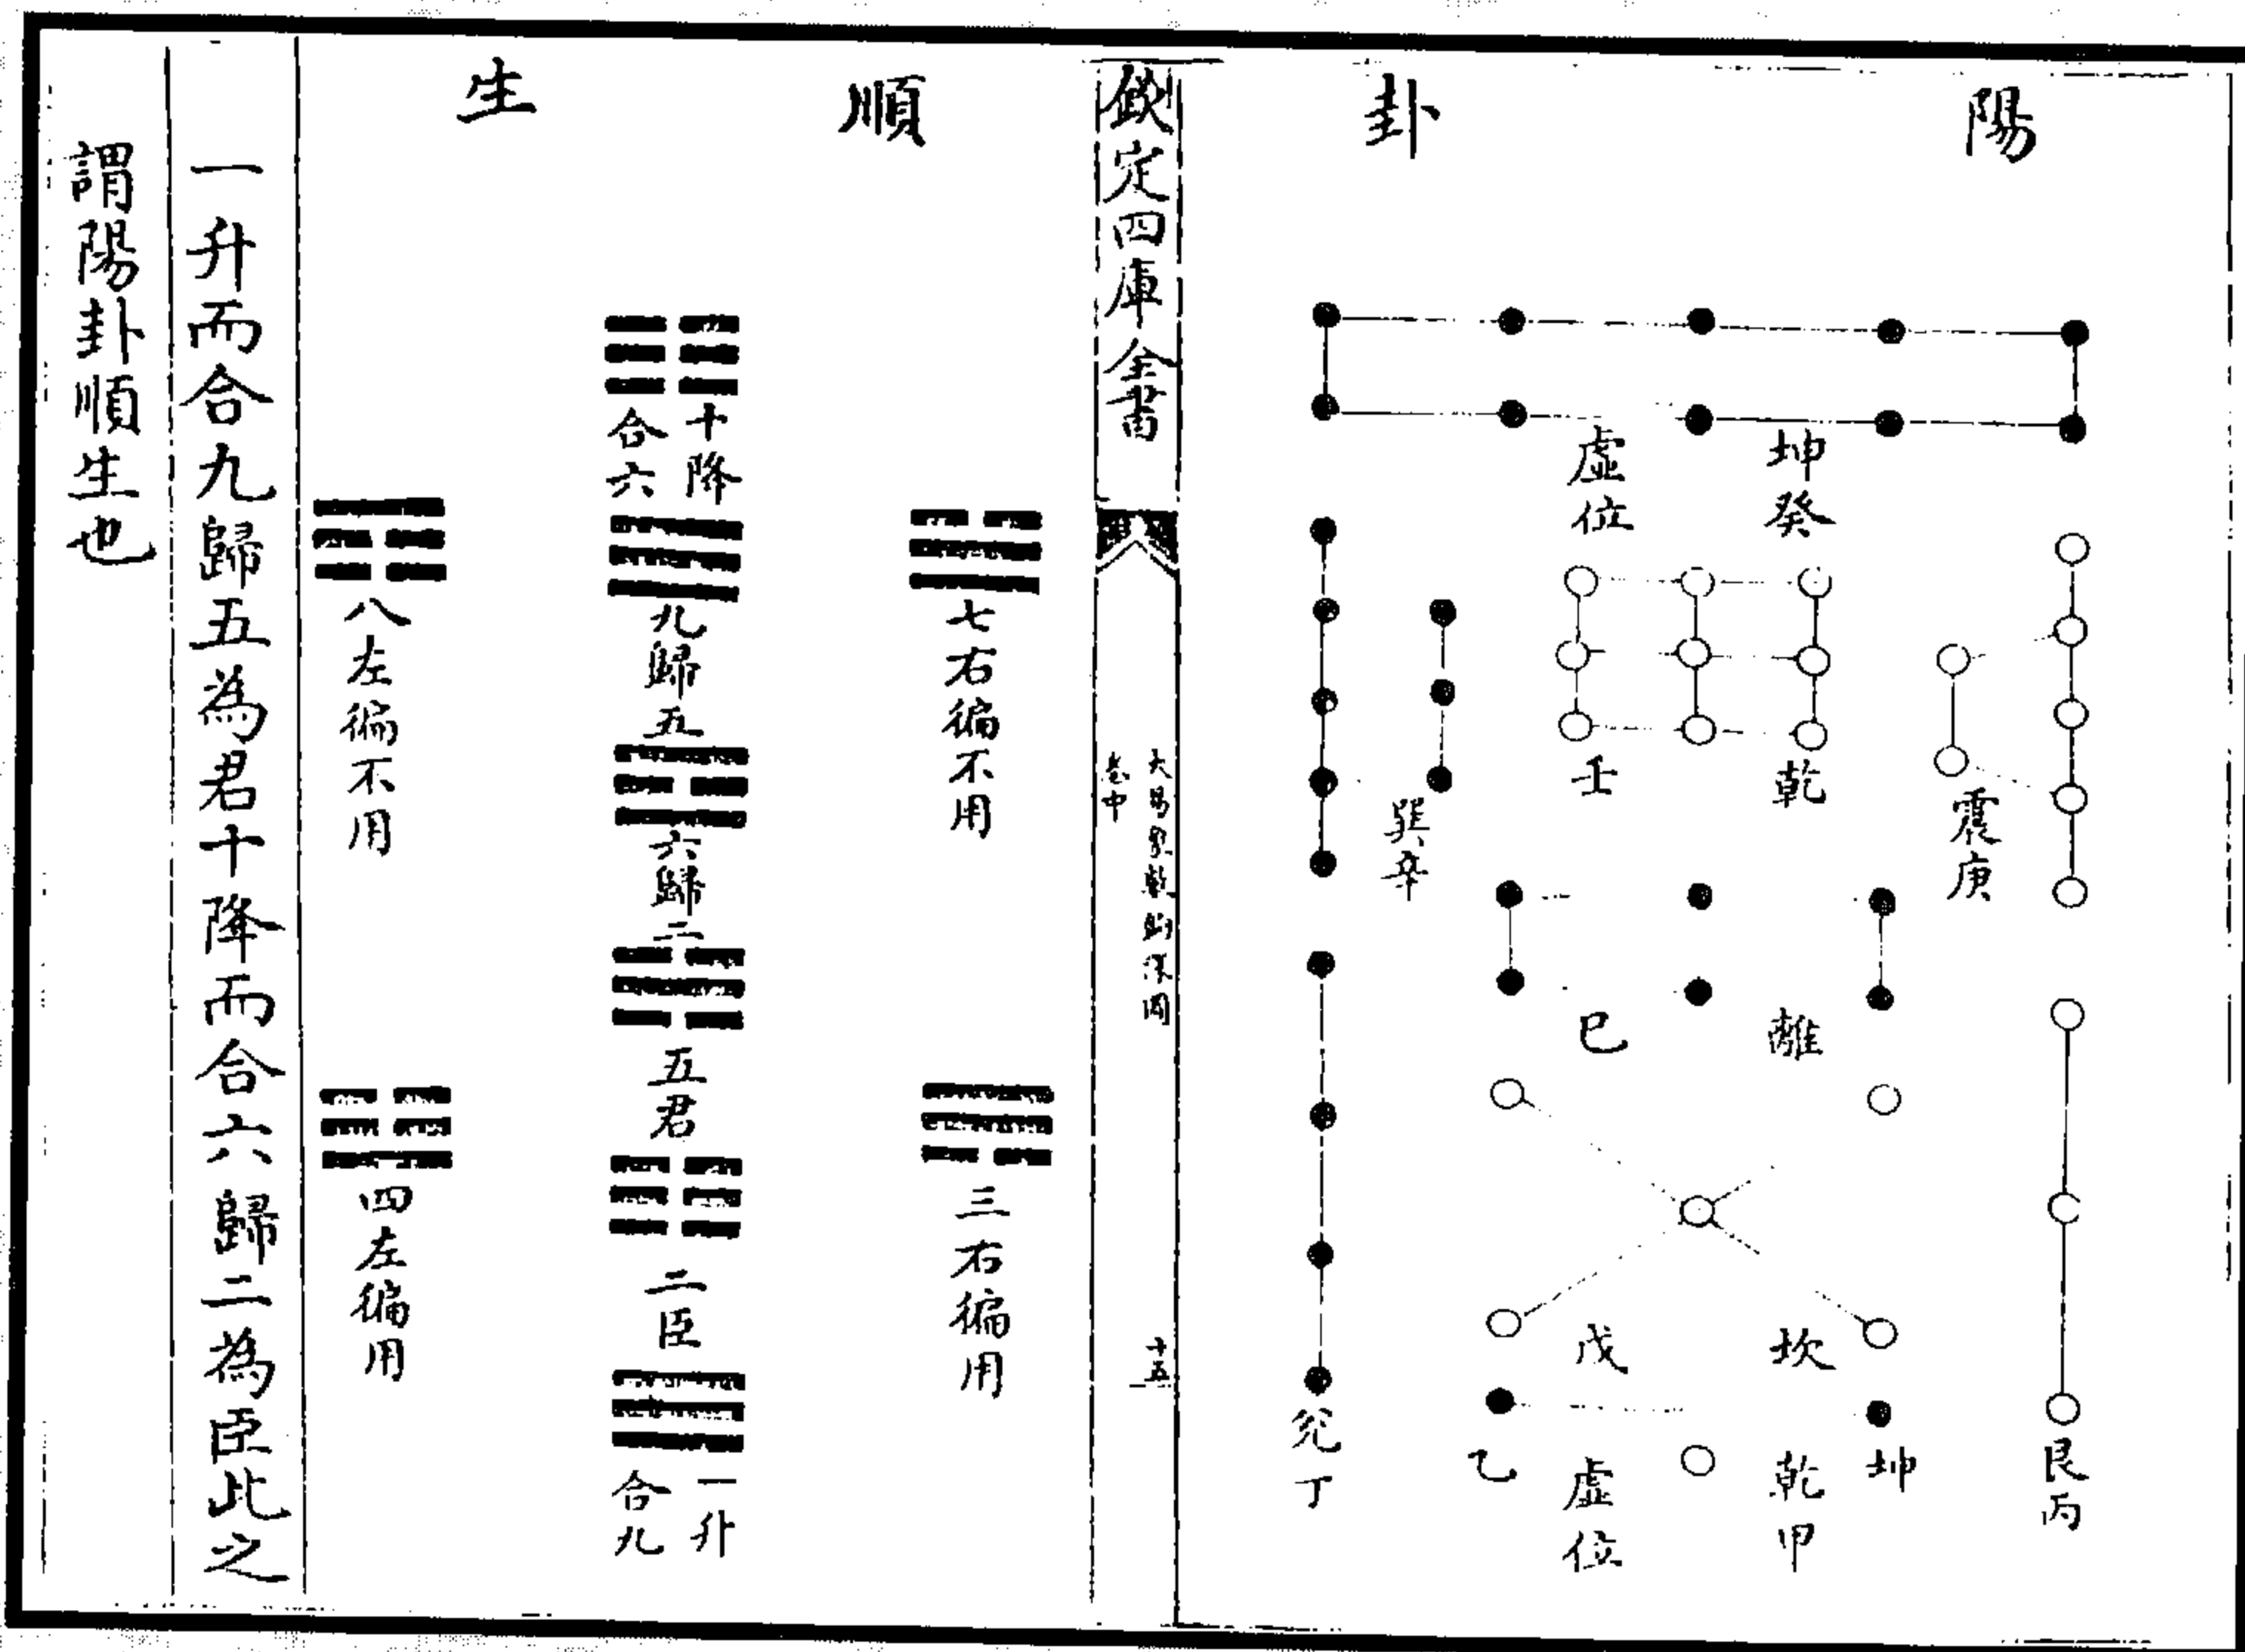 陽
卦
坤癸
虛位
震庚
乾
壬
巽辛
離
巳
坎
戊
艮丙
坤
乾甲
虛位
乙
兌丁
欽定四庫全書
大易象數鉤深圖
卷中
十五
順
生
七右徧不用
三右徧用
十降
合六
九歸五
六歸二
五君
二臣
一升
合九
八左徧不用
四左徧用
一升而合九歸五為君十降而合六歸二為臣此之
謂陽卦順生也